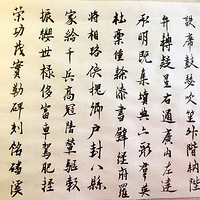 設席鼓瑟吹笙升階納陛
弁轉疑星右通廣內左達
承明既集墳典亦聚群英
杜稾鍾隸漆書壁經府羅
將相路俠槐卿戶封八縣
家給千兵高冠陪輦驅轂
振纓世祿侈富車駕肥輕
策功茂實勒碑刻銘磻溪